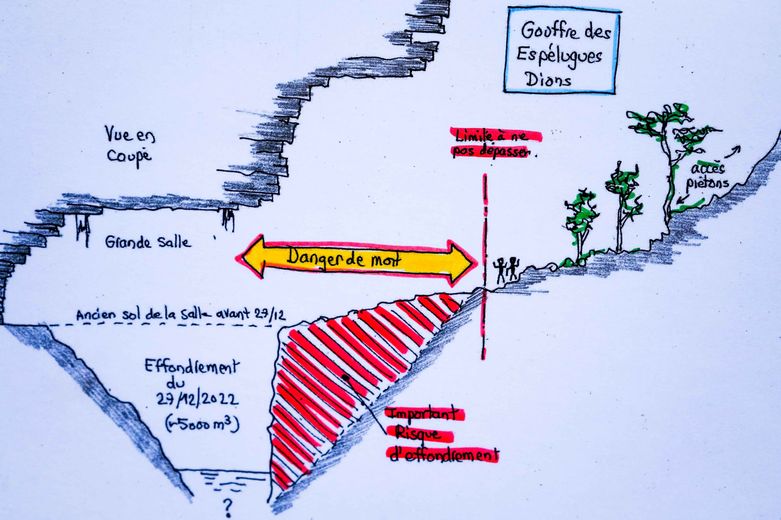 Gouffre des
Espélugues
Dions
Vue en
Coupe
Limite à ne
pas dépasser.
accès
piétons
Grande Salle
Danger de mort
Ancien sol de la Salle avant 27/12
Effondrement
du
27/12/2022
(~5000 m³)
Important
Risque
d'effondrement
?